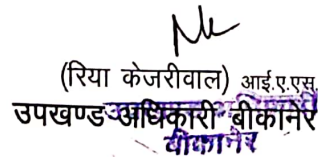 (रिया केजरीवाल) आई.ए.एस.
उपखण्ड अधिकारी बीकानेर
बीकानेर